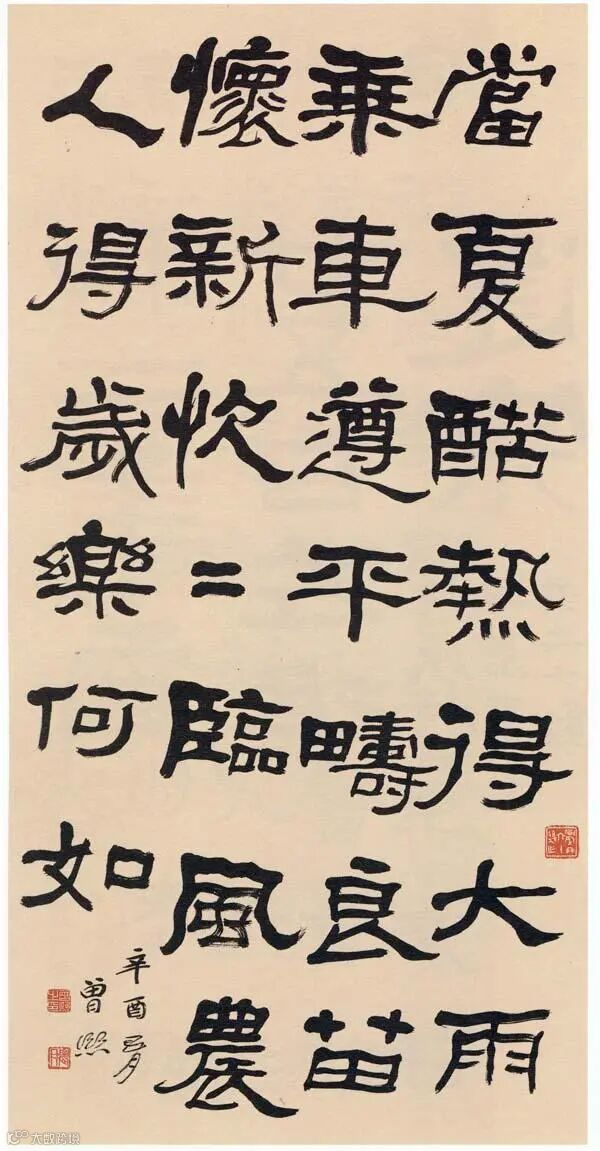 當夏酷熱得大雨
乘車遵平疇良苗
懷新=臨風農
人得歲樂何如
辛酉
曾熙
大数跨境